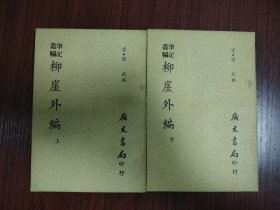 筆記
叢編
柳崖外編
上
清・徐昆撰
廣文書局
印行
筆記
叢編
柳崖外編
下
清・徐昆撰
廣文書局
印行